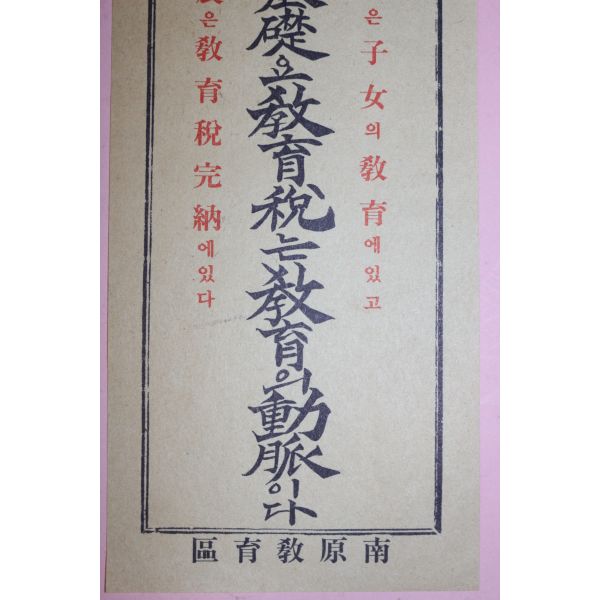 은子女의敎育에있고
礎요敎育稅는敎育의動脈이다
은敎育稅完納에있다
南原敎育區